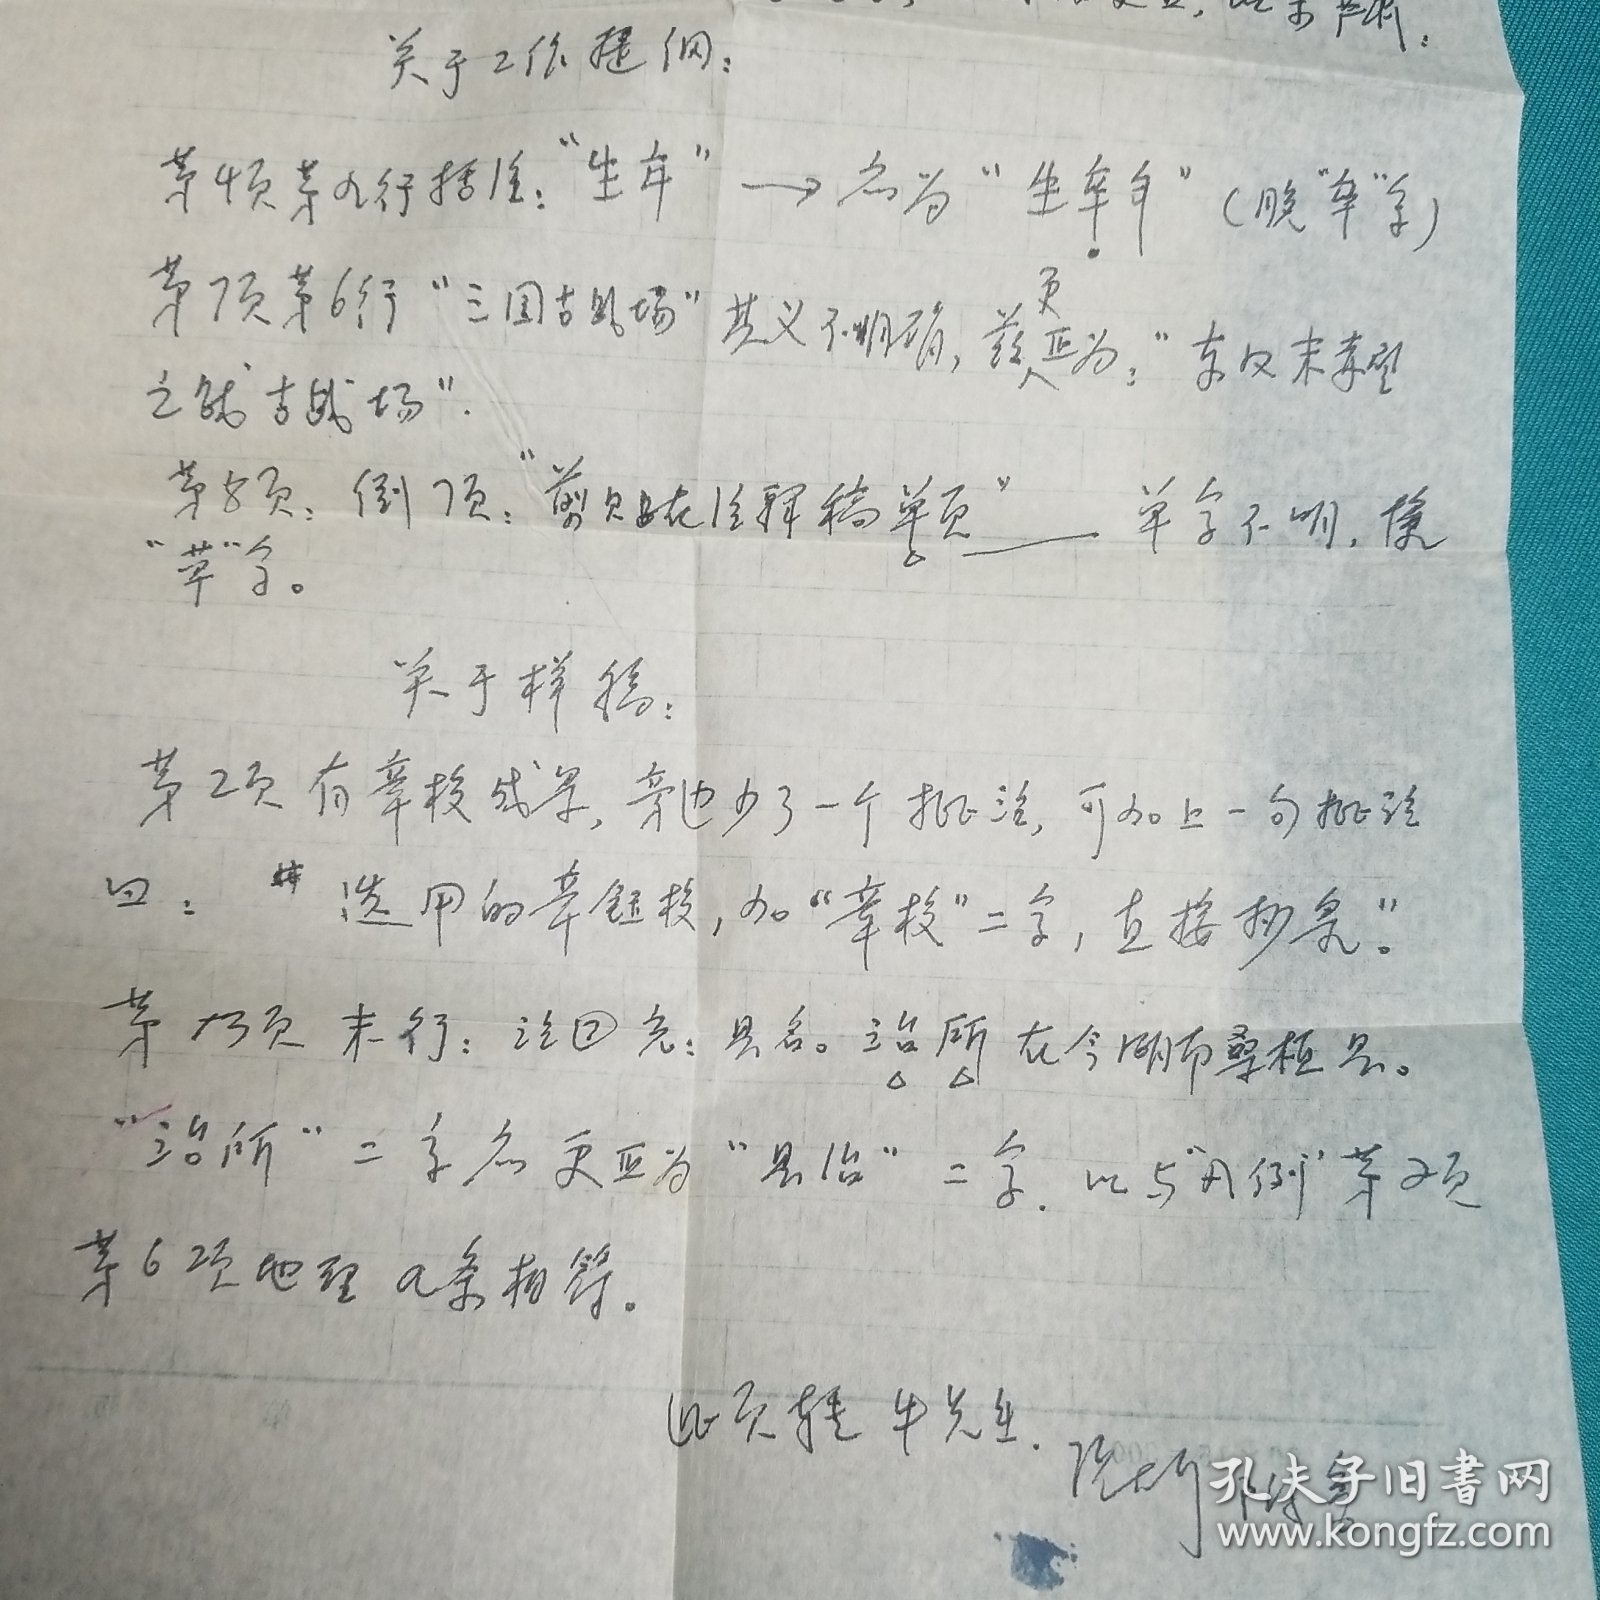 关于工作提纲：
第4页第九行括注：“生年”→应为“生卒年”（脱“卒”字）
第7页第6行“三国古战场”其义不明确，兹更正为：“东汉末赤壁
之战古战场”。
第8页：倒7页：“剪贴在注释稿单页”——单字不明，换
“草”字。
关于样稿：
第2页有章校成果，旁边少了一个批注，可加上一句批注
曰：“选用的章钰校，加“章校”二字，直接抄录。”
第13页末行：注回充：县名。治所在今湖南桑植县。
“治所”二字应更正为“县治”二字．以与“凡例”第2页
第6项地理a条相符。
此页转 牛先生．
孔夫子旧书网
www.kongfz.com